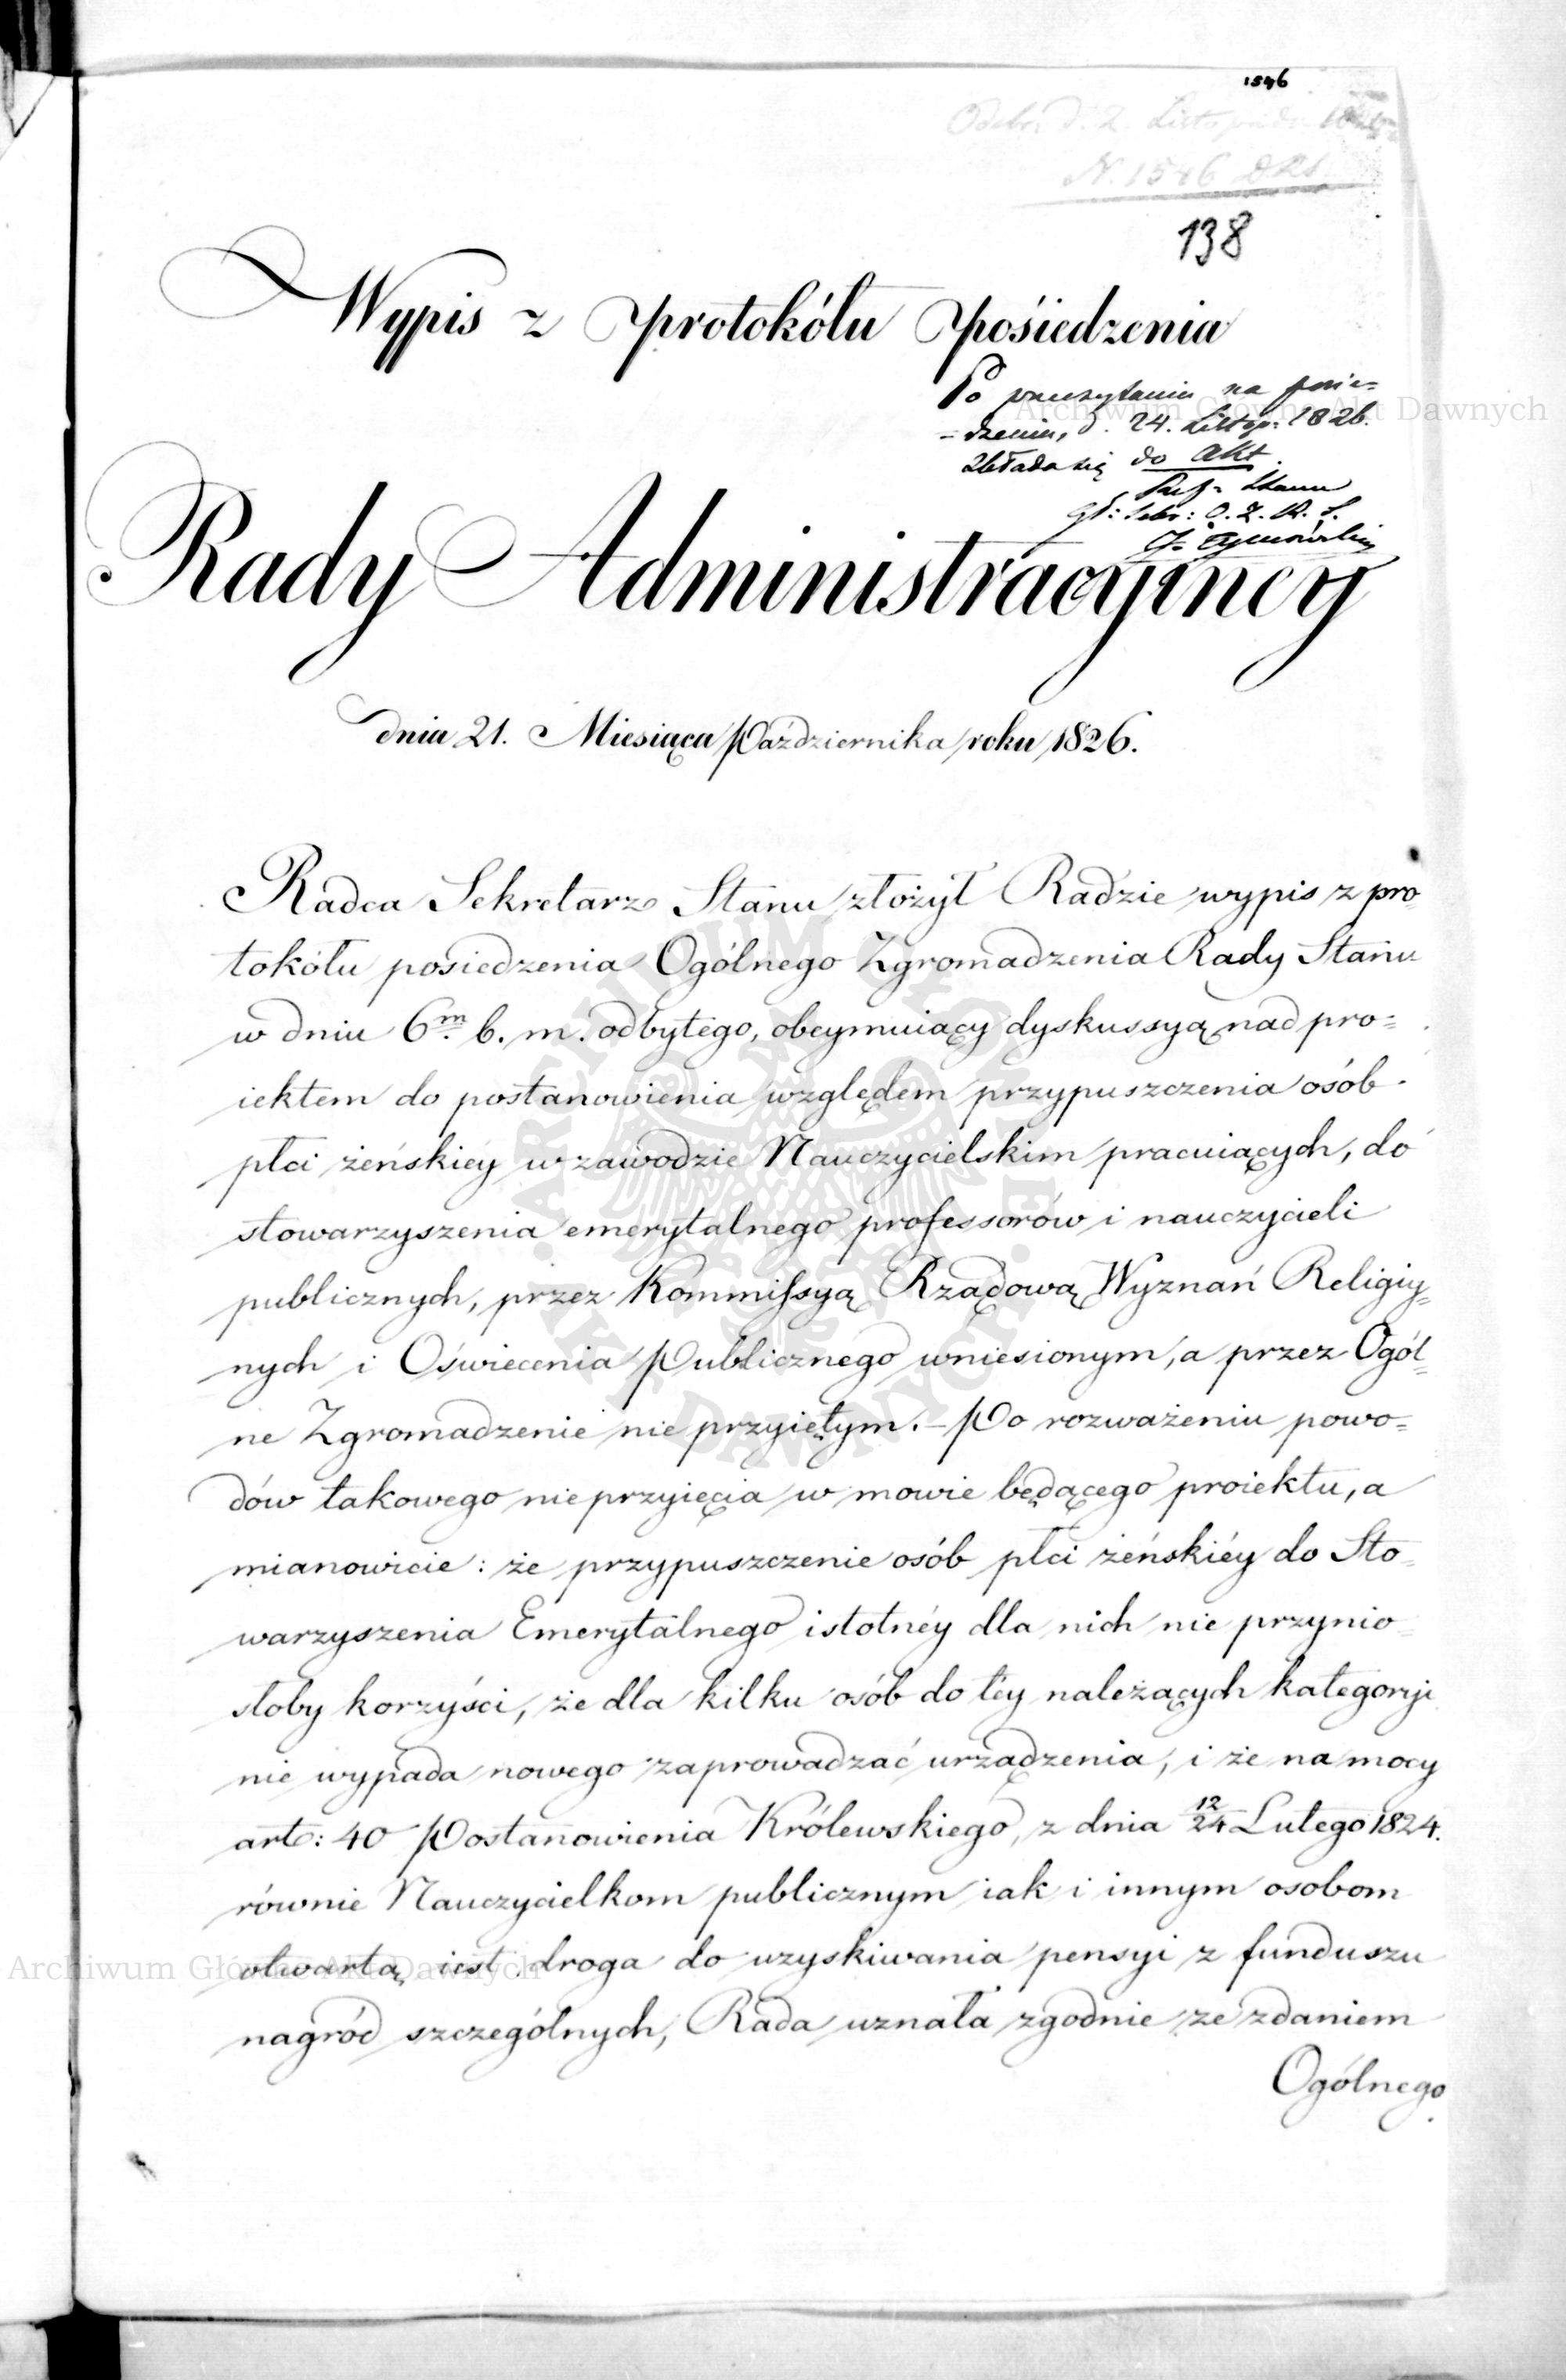 1546
Odebr. d. 2. Listopada 1826
N. 1546 DRS
138
Wypis z protokółu pośiedzenia
Po przeczytaniu na posie=
=dzeniu, d. 24. Listop: 1826.
składa się do Akt.
Stanu
J. Tymowski
Rady Administracyjney
dnia 21. Miesiąca Października roku 1826.
Radca Sekretarz Stanu złożył Radzie wypis z pro
tokółu posiedzenia Ogólnego Zgromadzenia Rady Stanu
w dniu 6m. b. m. odbytego, obeymuiący dyskussyą nad pro=
iektem do postanowienia względem przypuszczenia osób
płci żeńskiéy w zawodzie Nauczycielskim pracuiących, do
stowarzyszenia emerytalnego professorów i nauczycieli
publicznych, przez Kommissyą Rządową Wyznań Religiy=
nych i Oświecenia Publicznego wniesionym, a przez Ogól=
ne Zgromadzenie nie przyiętym. – Po rozważeniu powo=
dów takowego nieprzyięcia w mowie będącego proiektu, a
mianowicie: że przypuszczenie osób płci żeńskiéy do Sto
warzyszenia Emerytalnego istotnéy dla nich nie przynio
słoby korzyści, że dla kilku osób do téy należących kategoryi
nie wypada nowego zaprowadzać urządzenia, i że na mocy
art: 40 Postanowienia Królewskiego, z dnia 12/24 Lutego 1824.
równie Nauczycielkom publicznym iak i innym osobom
otwartą iest droga do uzyskiwania pensyi z funduszu
nagród szczególnych, Rada uznała zgodnie ze zdaniem
Ogólnego
Archiwum Główne Akt Dawnych
Archiwum Główne Akt Dawnych
ARCHIWUM GŁÓWNE AKT DAWNYCH